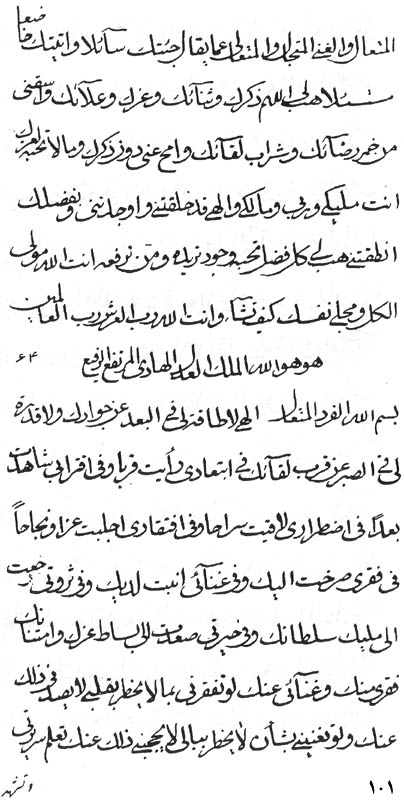 المتعال والغني المتجلل والمتعالي عما يقال جئتك سآئلا واتيتك خاضعا
متبتلا هب لي اللهم ذكرك وثنآئك وعزك وعلآئك واسقني
من خمر رضآئك وشراب لقآئك وامح عني دون ذكرك وما لا تحبه لعزك
انت مليكي وربي ومالكي والهي قد خلقتني واوجدتني وبفضلك
انطقتني هب لي كل فضل تحبه وجود تريده ومن ترفعه انت الله مولى
الكل ومجلي نفسك كيف تشآء وانت الله رب العرش رب العالمين
هو هو الله الملك العدل الهادي المرتفع الرفيع ٦٤
بسم الله الفرد المتعال الهي لا طاقة لي في البعد عن جوارك ولا قدرة
لي في الصبر عن قرب لقآئك في ابتعادي رأيت قربا وفي اقترابي شاهدت
بعدا في اضطراري لاقيت سراحا وفي افتقاري اجلبت عزا ونجاحا
في فقري صرخت اليك وفي غنآئي انبت لديك وفي ثروتي رجعت
الى مليك سلطانك وفي حيرتي صعدت الى بساط عزك وامتنانك
فقري منك وغنآئي عنك لو تفقرني بما لا يخطر بقلبي لا يصدني ذلك
عنك ولو تغنيني بشأن لا يخطر ببالي لا يحجبني ذلك عنك تعلم سريرتي
١٠١
وتشهد